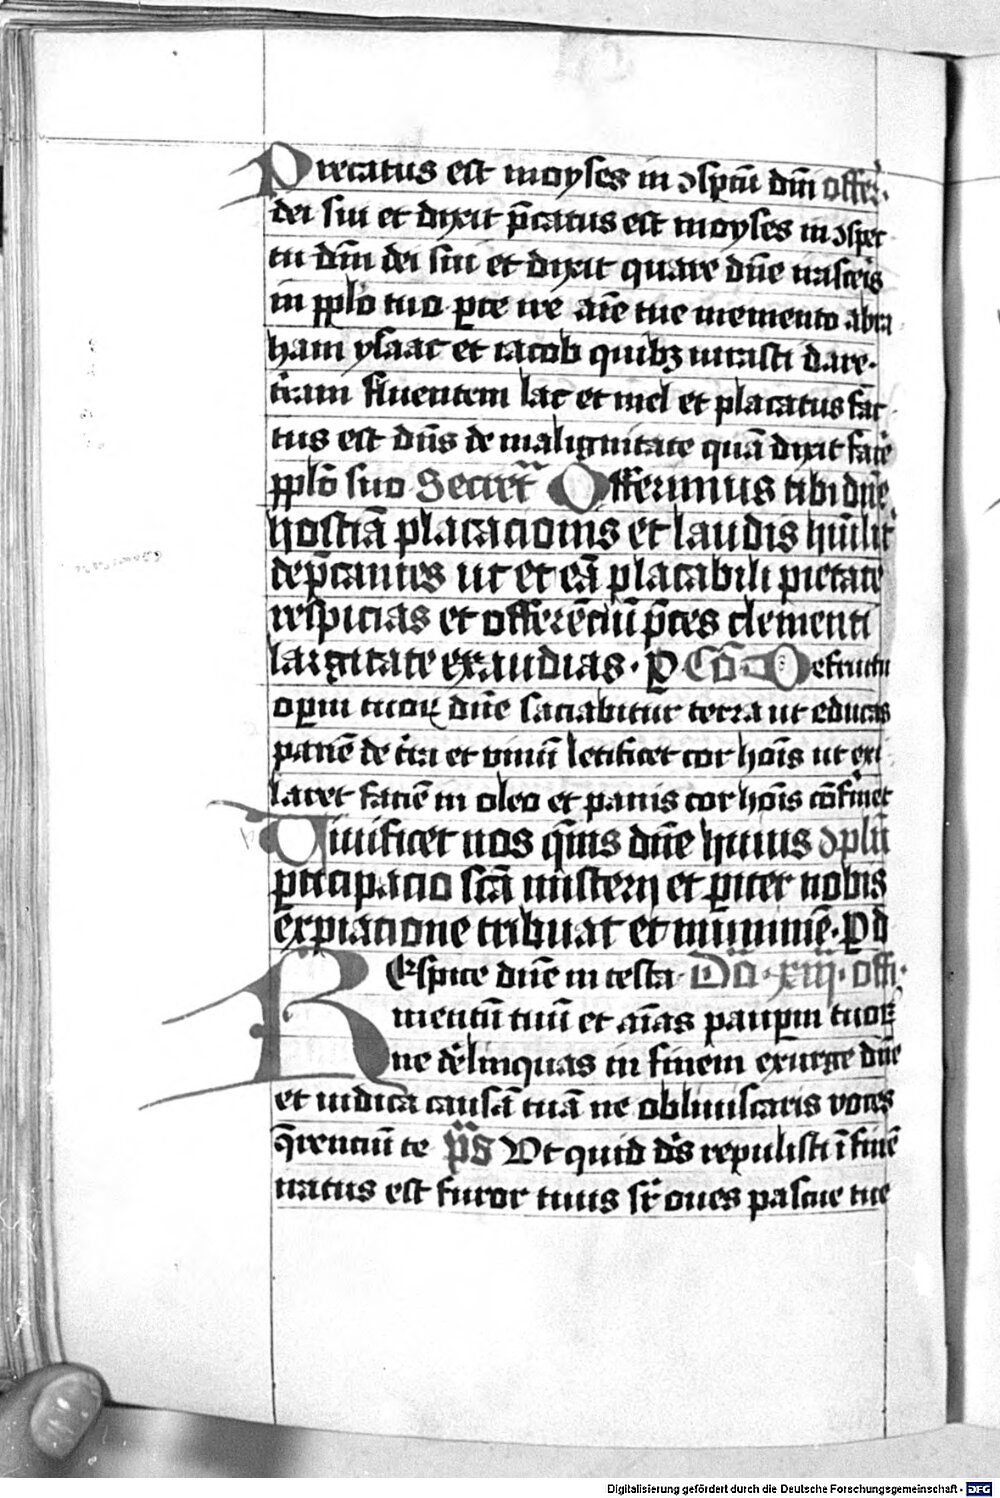 Precatus est moyses in ꝯspctū dm̄i offer̄.
dei sui et dixit p̄catus est moyses in ꝯspec
tu dm̄i dei sui et dixit quare dn̄e irasceris
in pplo tuo. pce ire aīe tue memento abra
ham ysaac et iacob quibꝫ iurasti dare.
t̄ram fluentem lac et mel et placatus fac
tus est dn̄s de malignitate quā dixit facē
pplō suo Secret̄ Offerimus tibi dn̄e
hostiā placacionis et laudis hūilit̄
dep̄cantes ut et eā placabili pietate
respicias et offerēciū p̄ces clementi
largitate exaudias. P. Cō De fructu
opm tuoꝝ dn̄e saciabitur terra ut educas
panē de t̄ra et vinū letificet cor hoīs ut exi
laret faciē in oleo et panis cor hoīs cōfirmet
Uiuificet nos q̄mus dn̄e huius ꝯplū
pticipacio sc̄a misterij et piter nobis
expiacione tribuat et munimē. P d
REspice dn̄e in testa. Dn̄ca. xiij. offi.
mentū tuū et aīas paupm tuoꝝ
ne derelinquas in finem exurge dn̄e
et iudica causā tuā ne obliuiscaris voces
q̄rentiū te p̄s Vt quid ds̄ repulisti ī finē
iratus est furor tuus sr̄ oues pascue tue
Digitalisierung gefördert durch die Deutsche Forschungsgemeinschaft - DFG